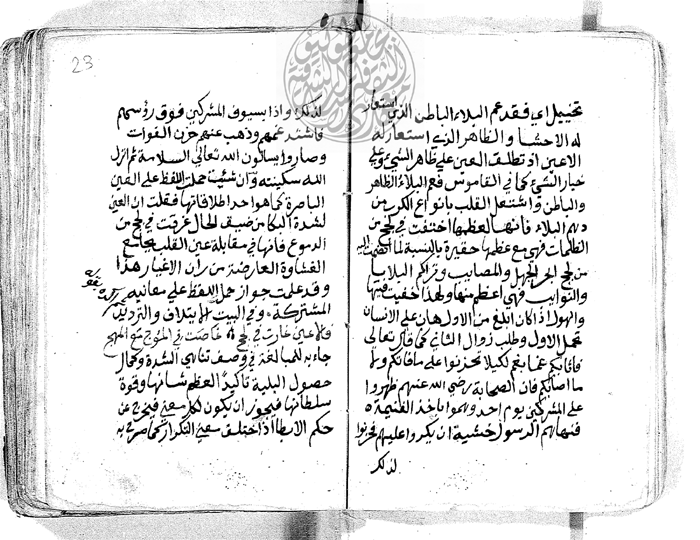 تخييل اي فقد عم البلاء الباطن الذي استعار
له الاحشا والظاهر الذي استعار له
الاعين اذ تطلق العين على ظاهر الشيء وعلى
خيار الشيء كما في القاموس فعم البلاء الظاهر
والباطن واشتعل القلب بانواع الكرب من
دهم البلاء فانها لعظمها اختفت في لجج من
الظلمات فهي مع عظمها حقيرة بالنسبة لما انضمت اليه
من لجج الجهل والمصايب وتراكم البلايا
والنوايب فهي اعظم منها ولهذا خفيت فيها
والهول اذا كان ابلغ من الاول هان على الانسان
تحمل الاول وطلب زوال الثاني كما قال تعالى
فاثابكم غما بغم لكيلا تحزنوا على ما فاتكم ولا
ما اصابكم فان الصحابة رضي الله عنهم ظهروا
على المشركين يوم احد وهموا باخذ الغنيمة
فنهاهم الرسول خشية ان يكروا عليهم فحزنوا
لذلك
23
لذلك واذا بسيوف المشركين فوق رؤسهم
فاشتد غمهم وذهب عنهم حزن الفوات
وصاروا يسالون الله تعالى السلامة ثم انزل
الله سكينته وان شئت حملت اللفظ على العين
الباصرة كما هو احد اطلاقاتها فقلت ان العين
لشدة البكا من ضيق الحال غرقت في لجج من
الدموع فانها في مقابلة عين القلب بجامع
الغشاوة العارضة من ران الاغيار هذا
وقد علمت جواز حمل اللفظ على معانيه
المشتركة وفي البيت الايتلاف والترديد
والاعين غارت في لجج خاضت في الموج مع المهج
جاء به للمبالغة في وصف تناهي الشدة وكمال
حصول البلية تاكيدا لعظم شانها وقوة
سلطانها فيجوز ان يكون لكل معنى فيخرج عن
حكم الايطا اذا اختلف معنى التكرار كما صرح به